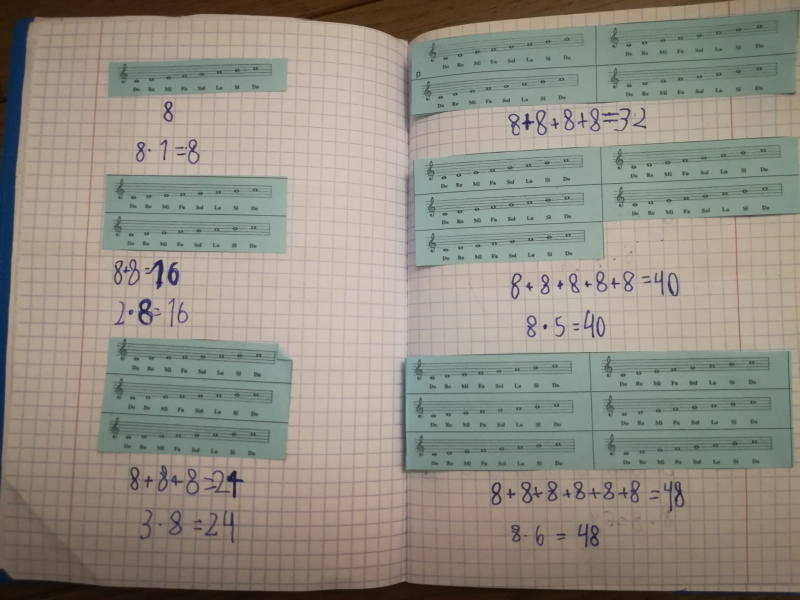 Do Re Mi Fa Sol La Si Do
8
8·1=8
Do Re Mi Fa Sol La Si Do
Do Re Mi Fa Sol La Si Do
8+8=16
2·8=16
Do Re Mi Fa Sol La Si Do
Do Re Mi Fa Sol La Si Do
Do Re Mi Fa Sol La Si Do
8+8+8=24
3·8=24
Do Re Mi Fa Sol La Si Do Do Re Mi Fa Sol La Si Do
p
Do Re Mi Fa Sol La Si Do Do Re Mi Fa Sol La Si Do
8+8+8+8=32
Do Re Mi Fa Sol La Si Do Do Re Mi Fa Sol La Si Do
Do Re Mi Fa Sol La Si Do Do Re Mi Fa Sol La Si Do
Do Re Mi Fa Sol La Si Do
8+8+8+8+8=40
8·5=40
Do Re Mi Fa Sol La Si Do Do Re Mi Fa Sol La Si Do
Do Re Mi Fa Sol La Si Do Do Re Mi Fa Sol La Si Do
Do Re Mi Fa Sol La Si Do Do Re Mi Fa Sol La Si Do
8+8+8+8+8+8=48
8·6=48